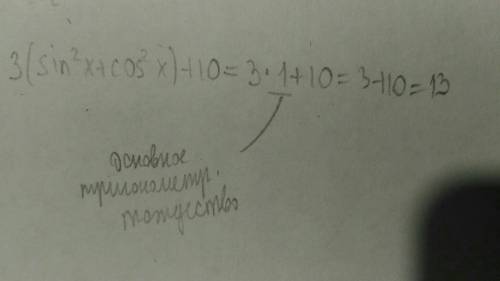 3(sin²x+cos²x)+10=3·1+10=3+10=13
основное
тригонометр.
тождество